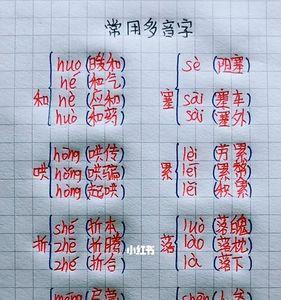 常用多音字
和
huo (暖和)
hé (和气)
hè (应和)
huò (和药)
塞
sè (阻塞)
sāi (塞车)
sài (塞外)
哄
hōng (哄传)
hǒng (哄骗)
hòng (起哄)
累
lèi (劳累)
léi (累赘)
lěi (积累)
折
shé (折本)
zhē (折腾)
zhé (折合)
小红书
落
luò (落魄)
lào (落枕)
là (落下)